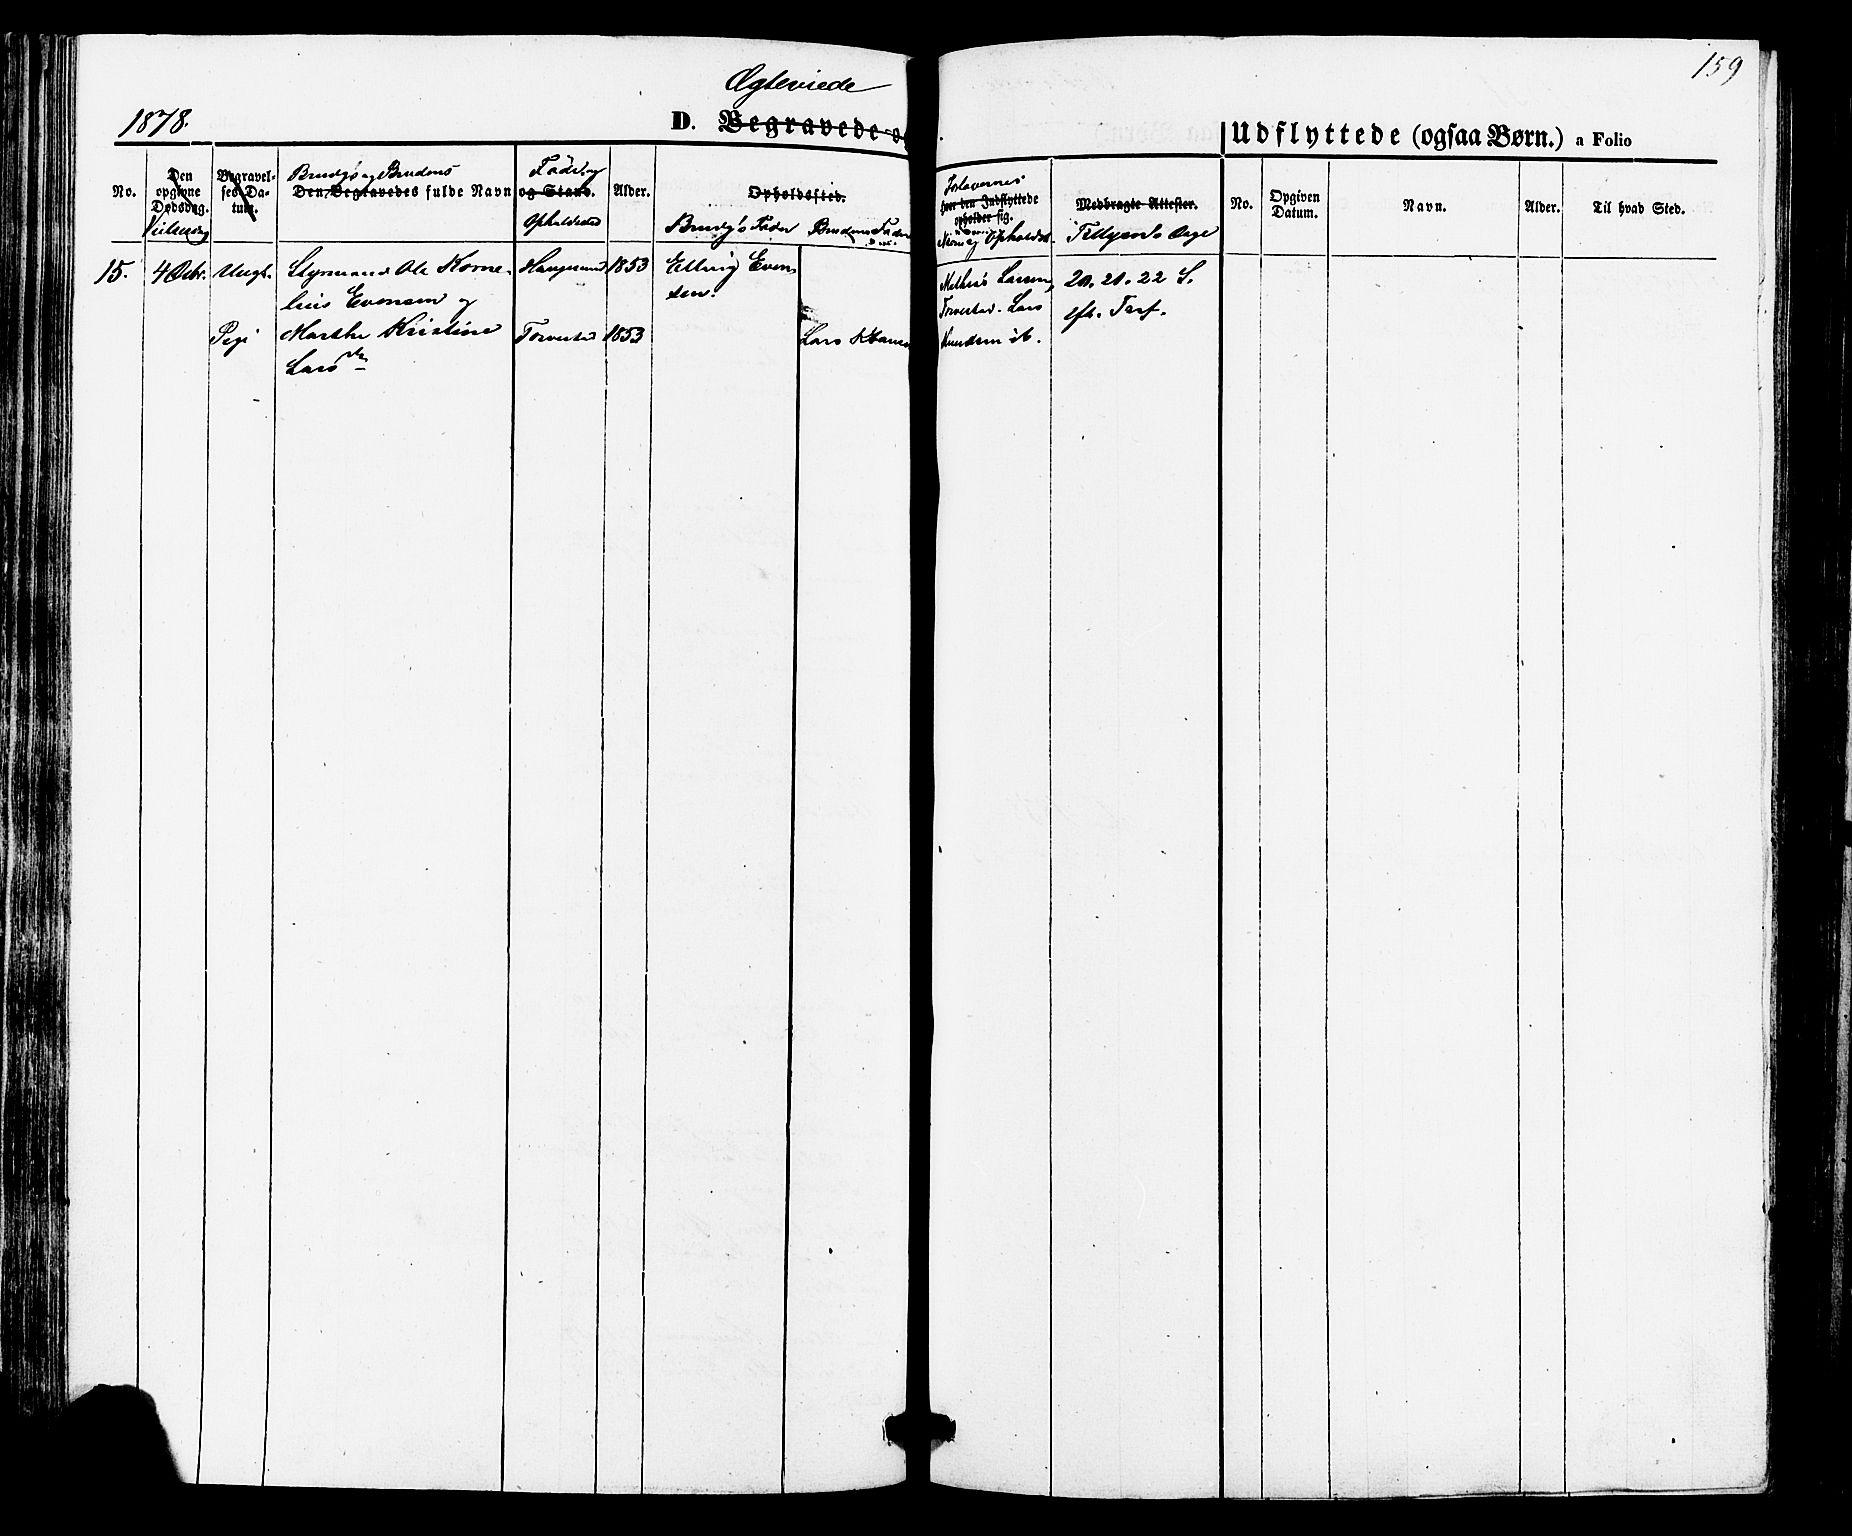 159
Ægteviede
1878.
D. Begravede og
Udflyttede (ogsaa Børn.) a Folio
No.
Den opgivne Dødsdag.
Vielsesdag
Begravelses Datum.
Brudgs og Brudens
Den Begravedes fulde Navn
Føde og
og Stand.
Opholdssted
Alder.
Opholdssted.
Brudg's Fader
Brudens Fader
Forlovernes
Hvor den Indflyttede opholder sig.
Navn og Opholdst.
Medbragte Attester.
Tillysnls Dage
No.
Opgiven Datum.
Navn.
Alder.
Til hvad Sted.
15.
4 Octbr.
Ungk.
Styrmand Ole Korne-
lius Evensen og
Haugesund
1853
Elling Even
sen.
Mathias Larsen,
Torvestad. Lars
Knudsen
20. 21. 22 S.
eft. Tref.
Pige
Marthe Kristine
Larsdtr
Torvestad
1853
Lars